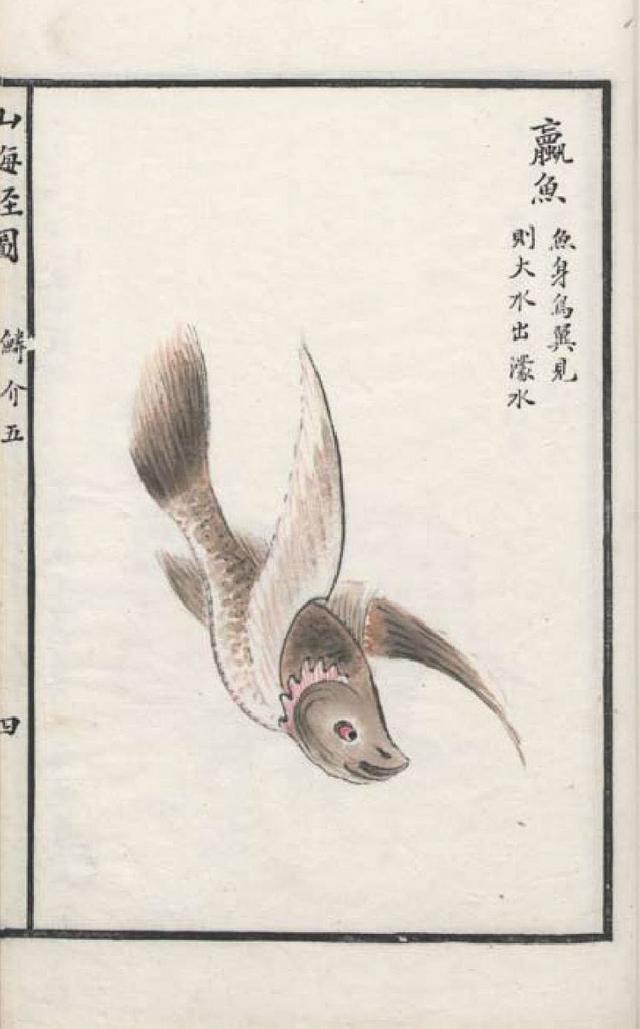 嬴魚
魚身鳥翼見
則大水出濛水
山海經圖 鱗介五
四